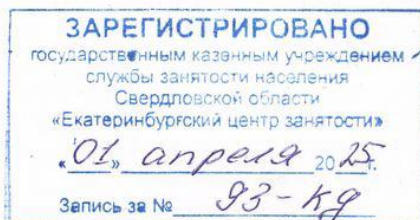 ЗАРЕГИСТРИРОВАНО
государственным казенным учреждением
службы занятости населения
Свердловской области
«Екатеринбургский центр занятости»
«01» апреля 2025г.
Запись за № 93-кд